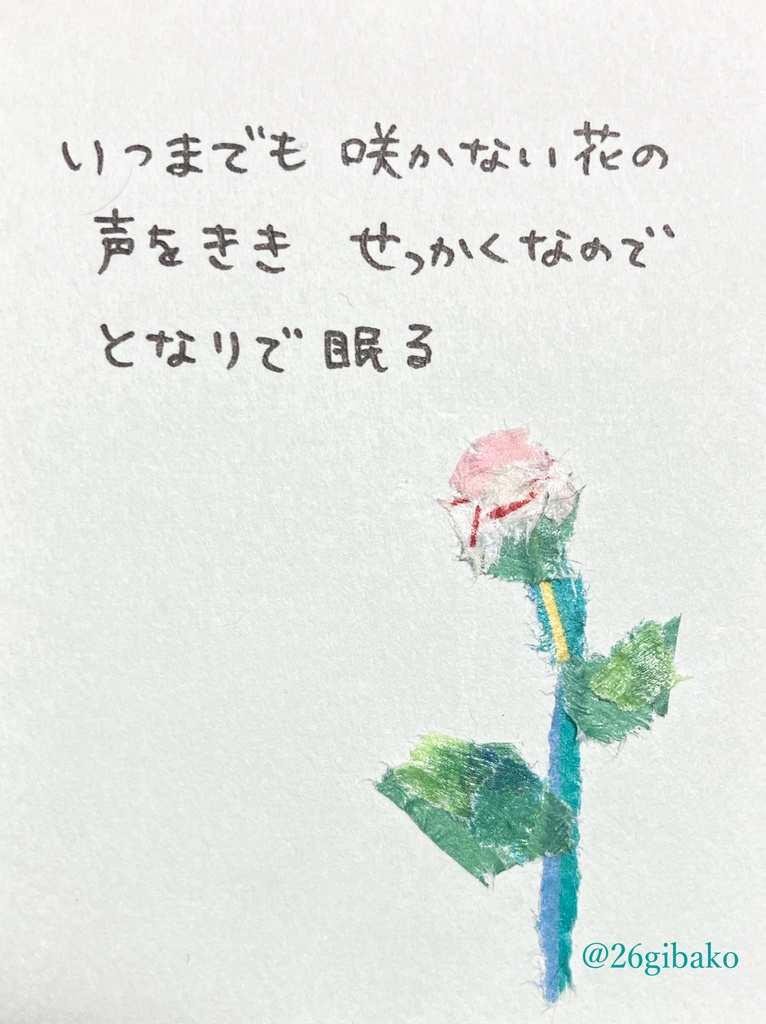 いつまでも 咲かない花の
声をきき　せっかくなので
となりで眠る
@26gibako